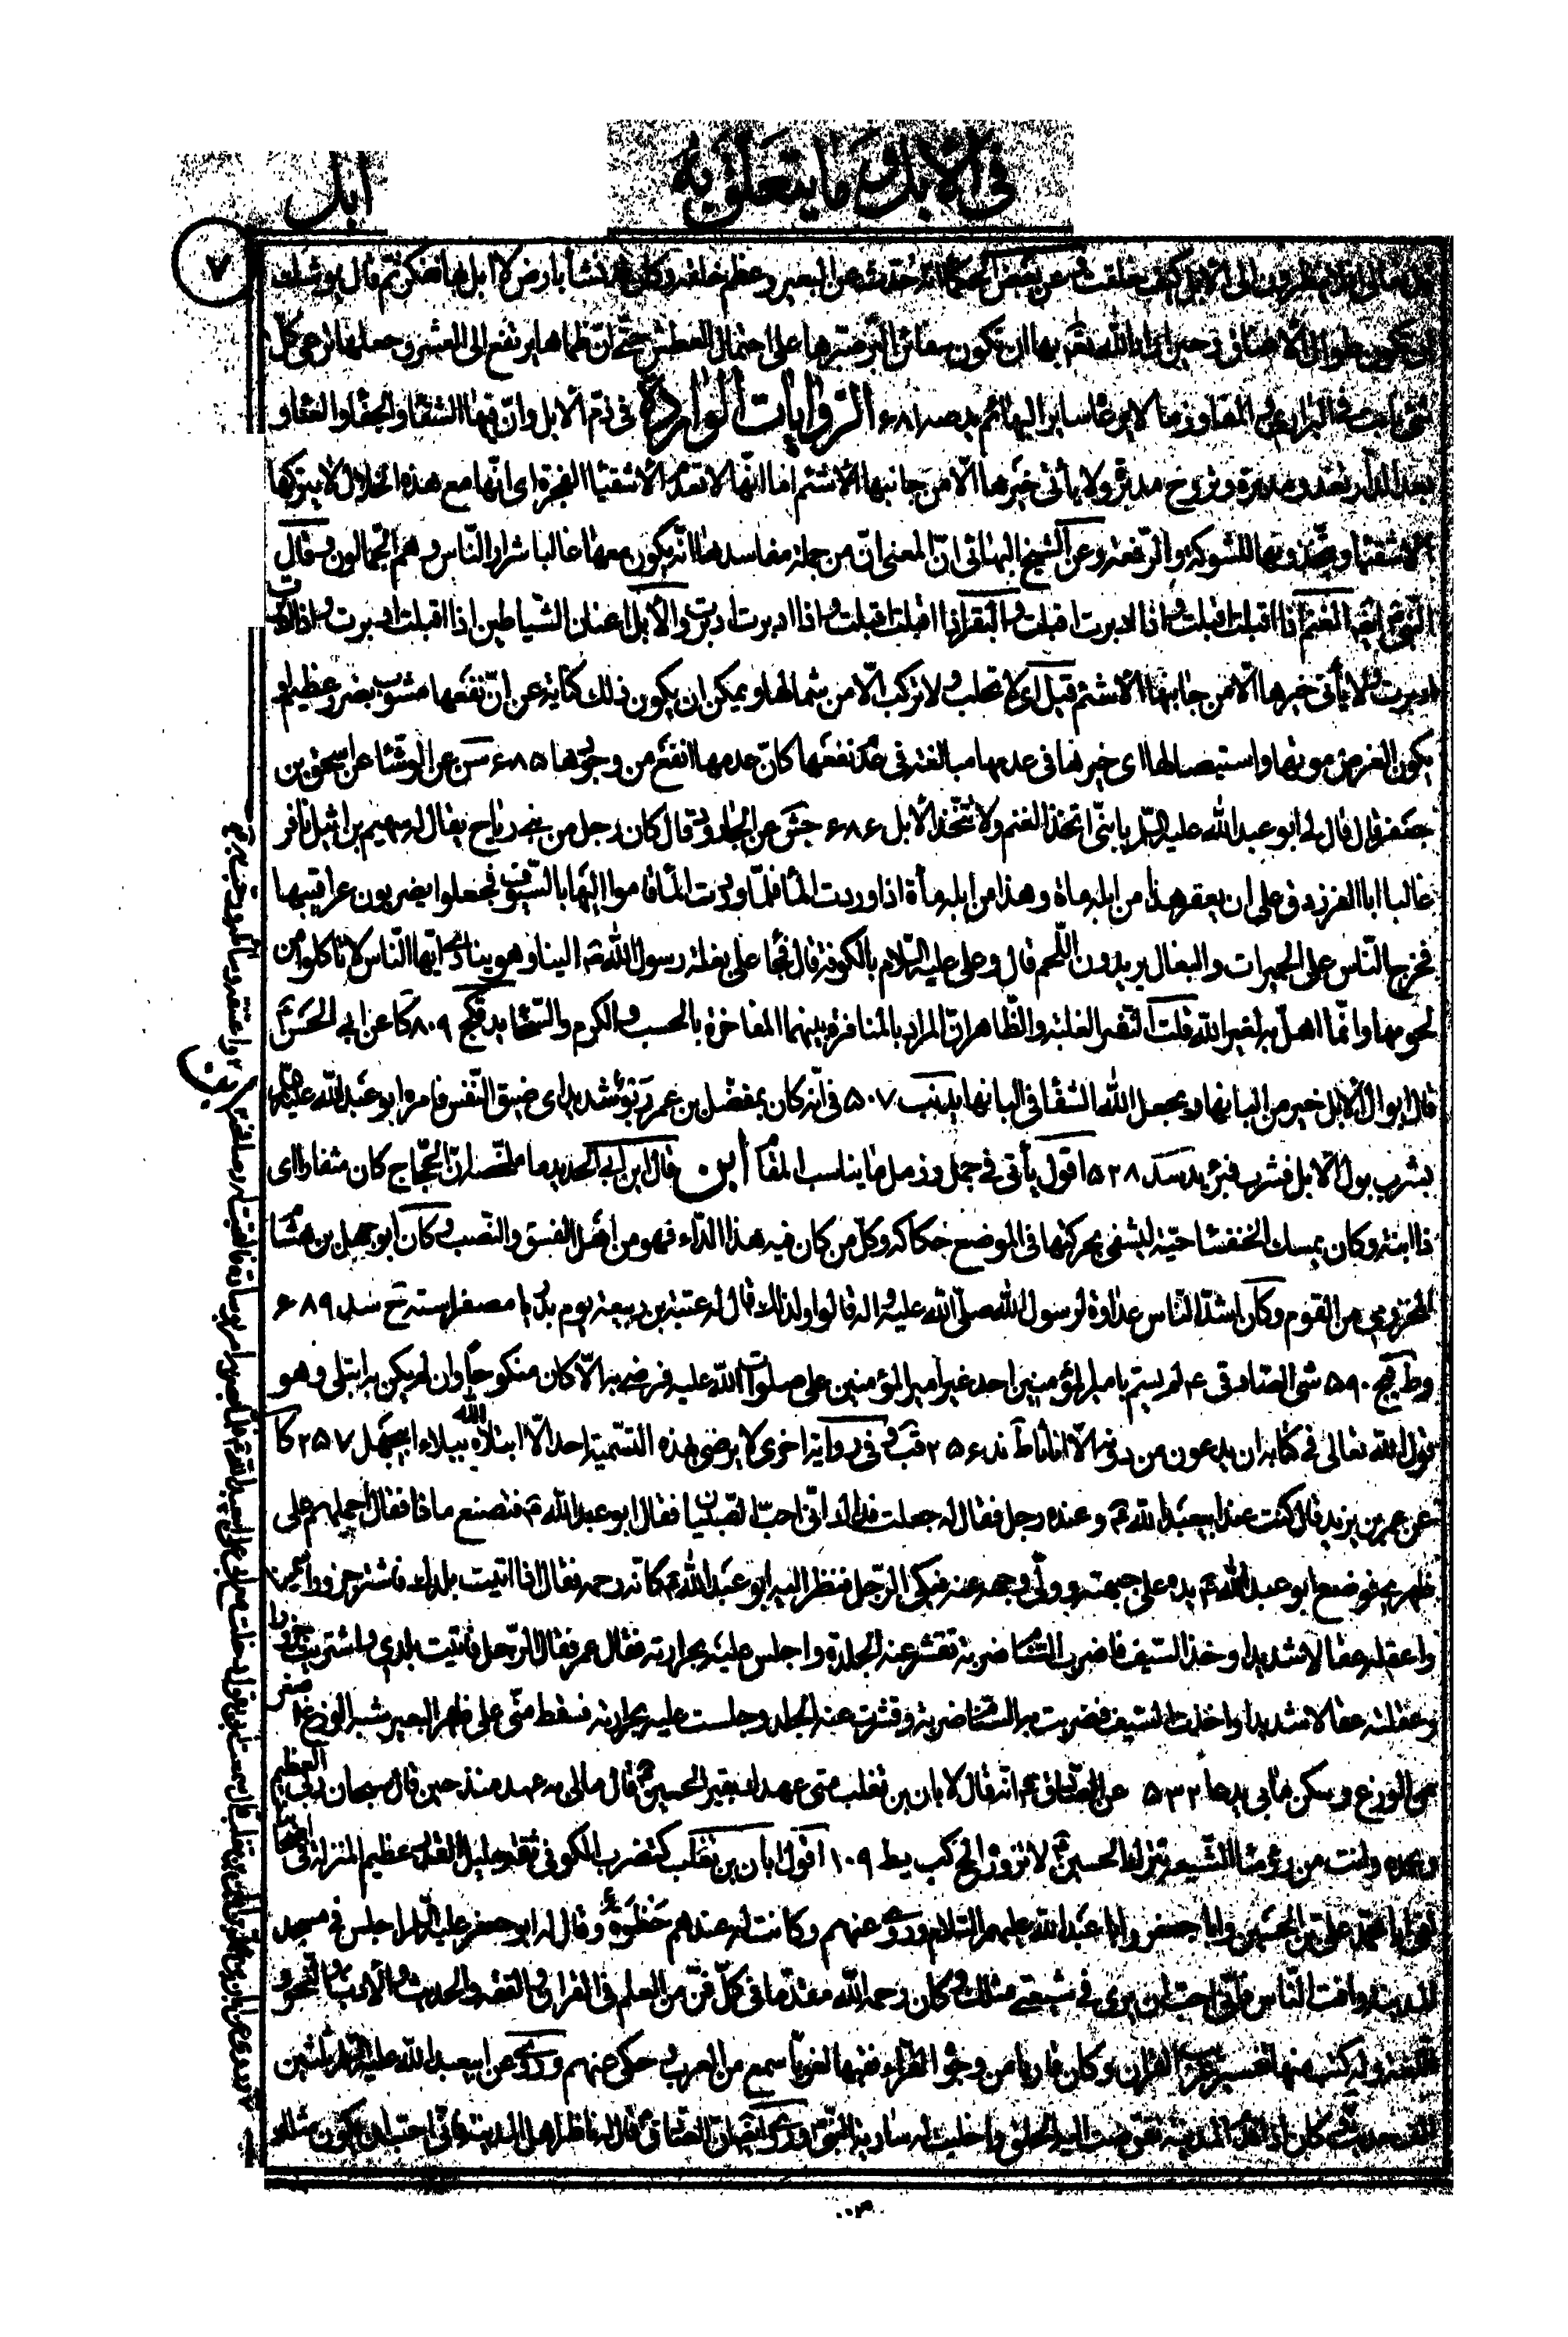 في الابل وما يتعلق به
ابل
٧
قوله تعالى افلا ينظرون الى الابل كيف خلقت وعن بعض الحكماء انه حدث عن البعير وعظم خلقه وكان قد نشأ بارض لا ابل بها ففكر ثم قال يوشك
ان تكون طوال الاعناق وحين اراد الله تعالى بها ان تكون سفائن البر صبرها على احتمال العطش حتى ان ظماها يرتفع الى العشر وجعلها ترعى كل
شئ نابت في البراري والمفاوز ما لا يرعاه سائر البهائم يد صد ٦٨١ الروايات الواردة في ذم الابل وان فيها الشقاء والجفاء والعناء و
بعد الدار تغدو مدبرة وتروح مدبرة ولا يأتي خيرها الا من جانبها الاشئم اما انها لا تعدم الاشقياء الفجرة اى انها مع هذه الخلال لا يتركها
الاشقياء ويتخذونها للشوكة والرفعة وعن الشيخ البهائى ان المعنى ان من جملة مفاسدها انه يكون معها غالبا شرار الناس وهم الجمالون وقال
النبي ص ايضا الغنم اذا اقبلت اقبلت واذا ادبرت اقبلت والبقر اذا اقبلت اقبلت واذا ادبرت ادبرت والابل اعنان الشياطين اذا اقبلت ادبرت واذا
ادبرت ادبرت ولا يأتي خيرها الا من جانبها الاشئم قيل اى لا تحلب ولا تركب الا من شمالها ويمكن ان يكون ذلك كناية عن ان نفعها مشوب بضرر عظيم او
يكون الغرض موتها واستيصالها اى خيرها في عدمها مبالغة في عدم نفعها كان عدمها انفع من وجودها ٦٨٥ سن عن الوشاء عن اسحق بن
جعفر قال قال لي ابو عبد الله عليه السلم يا بنى اتخذ الغنم ولا تتخذ الابل ٦٨٦ جش عن الجارود قال كان رجل من بنى رياح يقال له سحيم بن اثيل نافر
غالبا ابا الفرزدق على ان يعقر هذا من ابله مأة وهذا من ابله مأة اذا وردت الماء فلما وردت الماء قاموا اليها بالسيوف فجعلوا يضربون عراقيبها
فخرج الناس على الحميرات والبغال يريدون اللحم قال وعلى عليه السلام بالكوفة قال فجاء على بغلة رسول الله ص الينا وهو ينادى ايها الناس لا تأكلوا من
لحومها وانما اهل به لغير الله قلت النفر الغلبة والظاهر ان المراد بالمنافرة بينهما المفاخرة بالحسب والكرم والسخاء يد قكج ٨٠٩ كا عن ابي الحسن ع
قال ابوال الابل خير من البانها ويجعل الله الشفاء في البانها يد نب ٥٠٧ في انه كان بمفضل بن عمر ربو شديد اى ضيق النفس فامره ابو عبد الله عليه السلم
بشرب بول الابل فشرب فبرئ يد سد ٥٣٨ اقول يأتي في جمل وزمل ما يناسب المقام ابن قال ابن ابي الحديد ما ملخصه ان الحجاج كان مثفارا اى
ذا ابنة وكان يمسك الخنفساء حية ليشفى بحركتها في الموضع حكاكه وكل من كان فيه هذا الداء فهو من اهل الفسق والنصب وكان ابو جهل بن هشام
المخزومي من القوم وكان اشد الناس عداوة لرسول الله صلى الله عليه واله قالوا ولذلك قال له عتبة بن ربيعة يوم بدر يا مصفر استه ح سد ٦٨٩
وط قيج ٥٩٠ شى الصادق ع لم يسم بامير المؤمنين احد غير امير المؤمنين على صلوات الله عليه فرضى به الا كان منكوحا وان لم يكن به ابتلى وهو
قول الله تعالى في كتابه ان يدعون من دونه الا اناثا ط ند ٢٥٦ قب وفي رواية اخرى لا يرضى بهذه التسمية احد الا ابتلاه الله ببلاء ابيجهل ٢٥٧ كا
عن عمر بن يزيد قال كنت عند ابيعبد الله ع وعنده رجل فقال له جعلت فداك انى احب الصبيان فقال ابو عبد الله ع فتصنع ماذا فقال احملهم على
ظهرى فوضع ابو عبد الله ع يده على جبهته وولى وجهه عنه فبكى الرجل فنظر اليه ابو عبد الله ع كانه رحمه فقال اذا اتيت بلدك فاشتر جزورا سمينا
واعقله عقالا شديدا وخذ السيف فاضرب السنام ضربة تقشر عنه الجلدة واجلس عليه بحرارته فقال عمر فقال الرجل فاتيت بلدي واشتريت جزورا
وعقلته عقالا شديدا واخذت السيف فضربت به السنام ضربة وقشرت عنه الجلد وجلست عليه بحرارته فسقط منى على ظهر البعير شبه الوزغ اصغر
من الوزغ وسكن ما بي يد صا ٥٣٢ عن الصادق ع انه قال لابان بن تغلب متى عهدك بقبر الحسين ع قال مالي به عهد منذ حين قال سبحان ربى العظيم
وبحمده وانت من رؤساء الشيعة تترك الحسين ع لا تزوره الخ كب يط ١٠٩ اقول ابان بن تغلب كتضرب الكوفي ثقة جليل القدر عظيم المنزلة في اصحابنا
لقى ابا محمد على بن الحسين وابا جعفر وابا عبد الله عليهم السلام وروى عنهم وكانت له عندهم حظوة وقال له ابو جعفر عليه السلم اجلس في مسجد
المدينة وافت الناس فانى احب ان يرى في شيعتى مثلك وكان رحمه الله مقدما في كل فن من العلم في القران والفقه والحديث والادب والنحو و
اللغة وله كتب منها تفسير غريب القران وكان قاريا من وجوه القراء فقيها لغويا سمع من العرب وحكى عنهم وروى عن ابيعبد الله عليه السلم ثلثين
الف حديث وكان اذا قدم المدينة تقوضت اليه الحلق واخليت له سارية النبي ص وروى ايضا ان الصادق ع قال له ناظر اهل المدينة فانى احب ان يكون مثلك